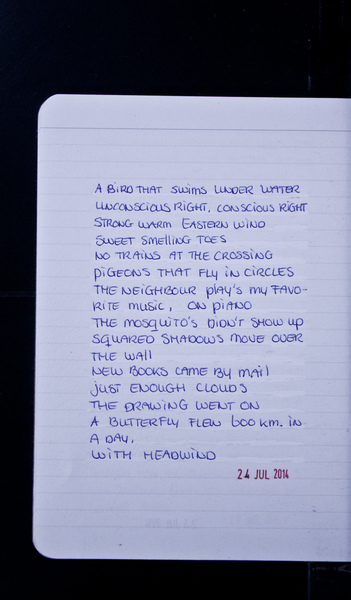 A BIRD THAT SWIMS UNDER WATER
UNCONSCIOUS RIGHT, CONSCIOUS RIGHT
STRONG WARM EASTERN WIND
SWEET SMELLING TOES
NO TRAINS AT THE CROSSING
PIGEONS THAT FLY IN CIRCLES
THE NEIGHBOUR PLAY'S MY FAVO-
RITE MUSIC, ON PIANO
THE MOSQUITO'S DIDN'T SHOW UP
SQUARED SHADOWS MOVE OVER
THE WALL
NEW BOOKS CAME BY MAIL
JUST ENOUGH CLOUDS
THE DRAWING WENT ON
A BUTTERFLY FLEW 600 KM. IN
A DAY,
WITH HEADWIND
24 JUL 2014